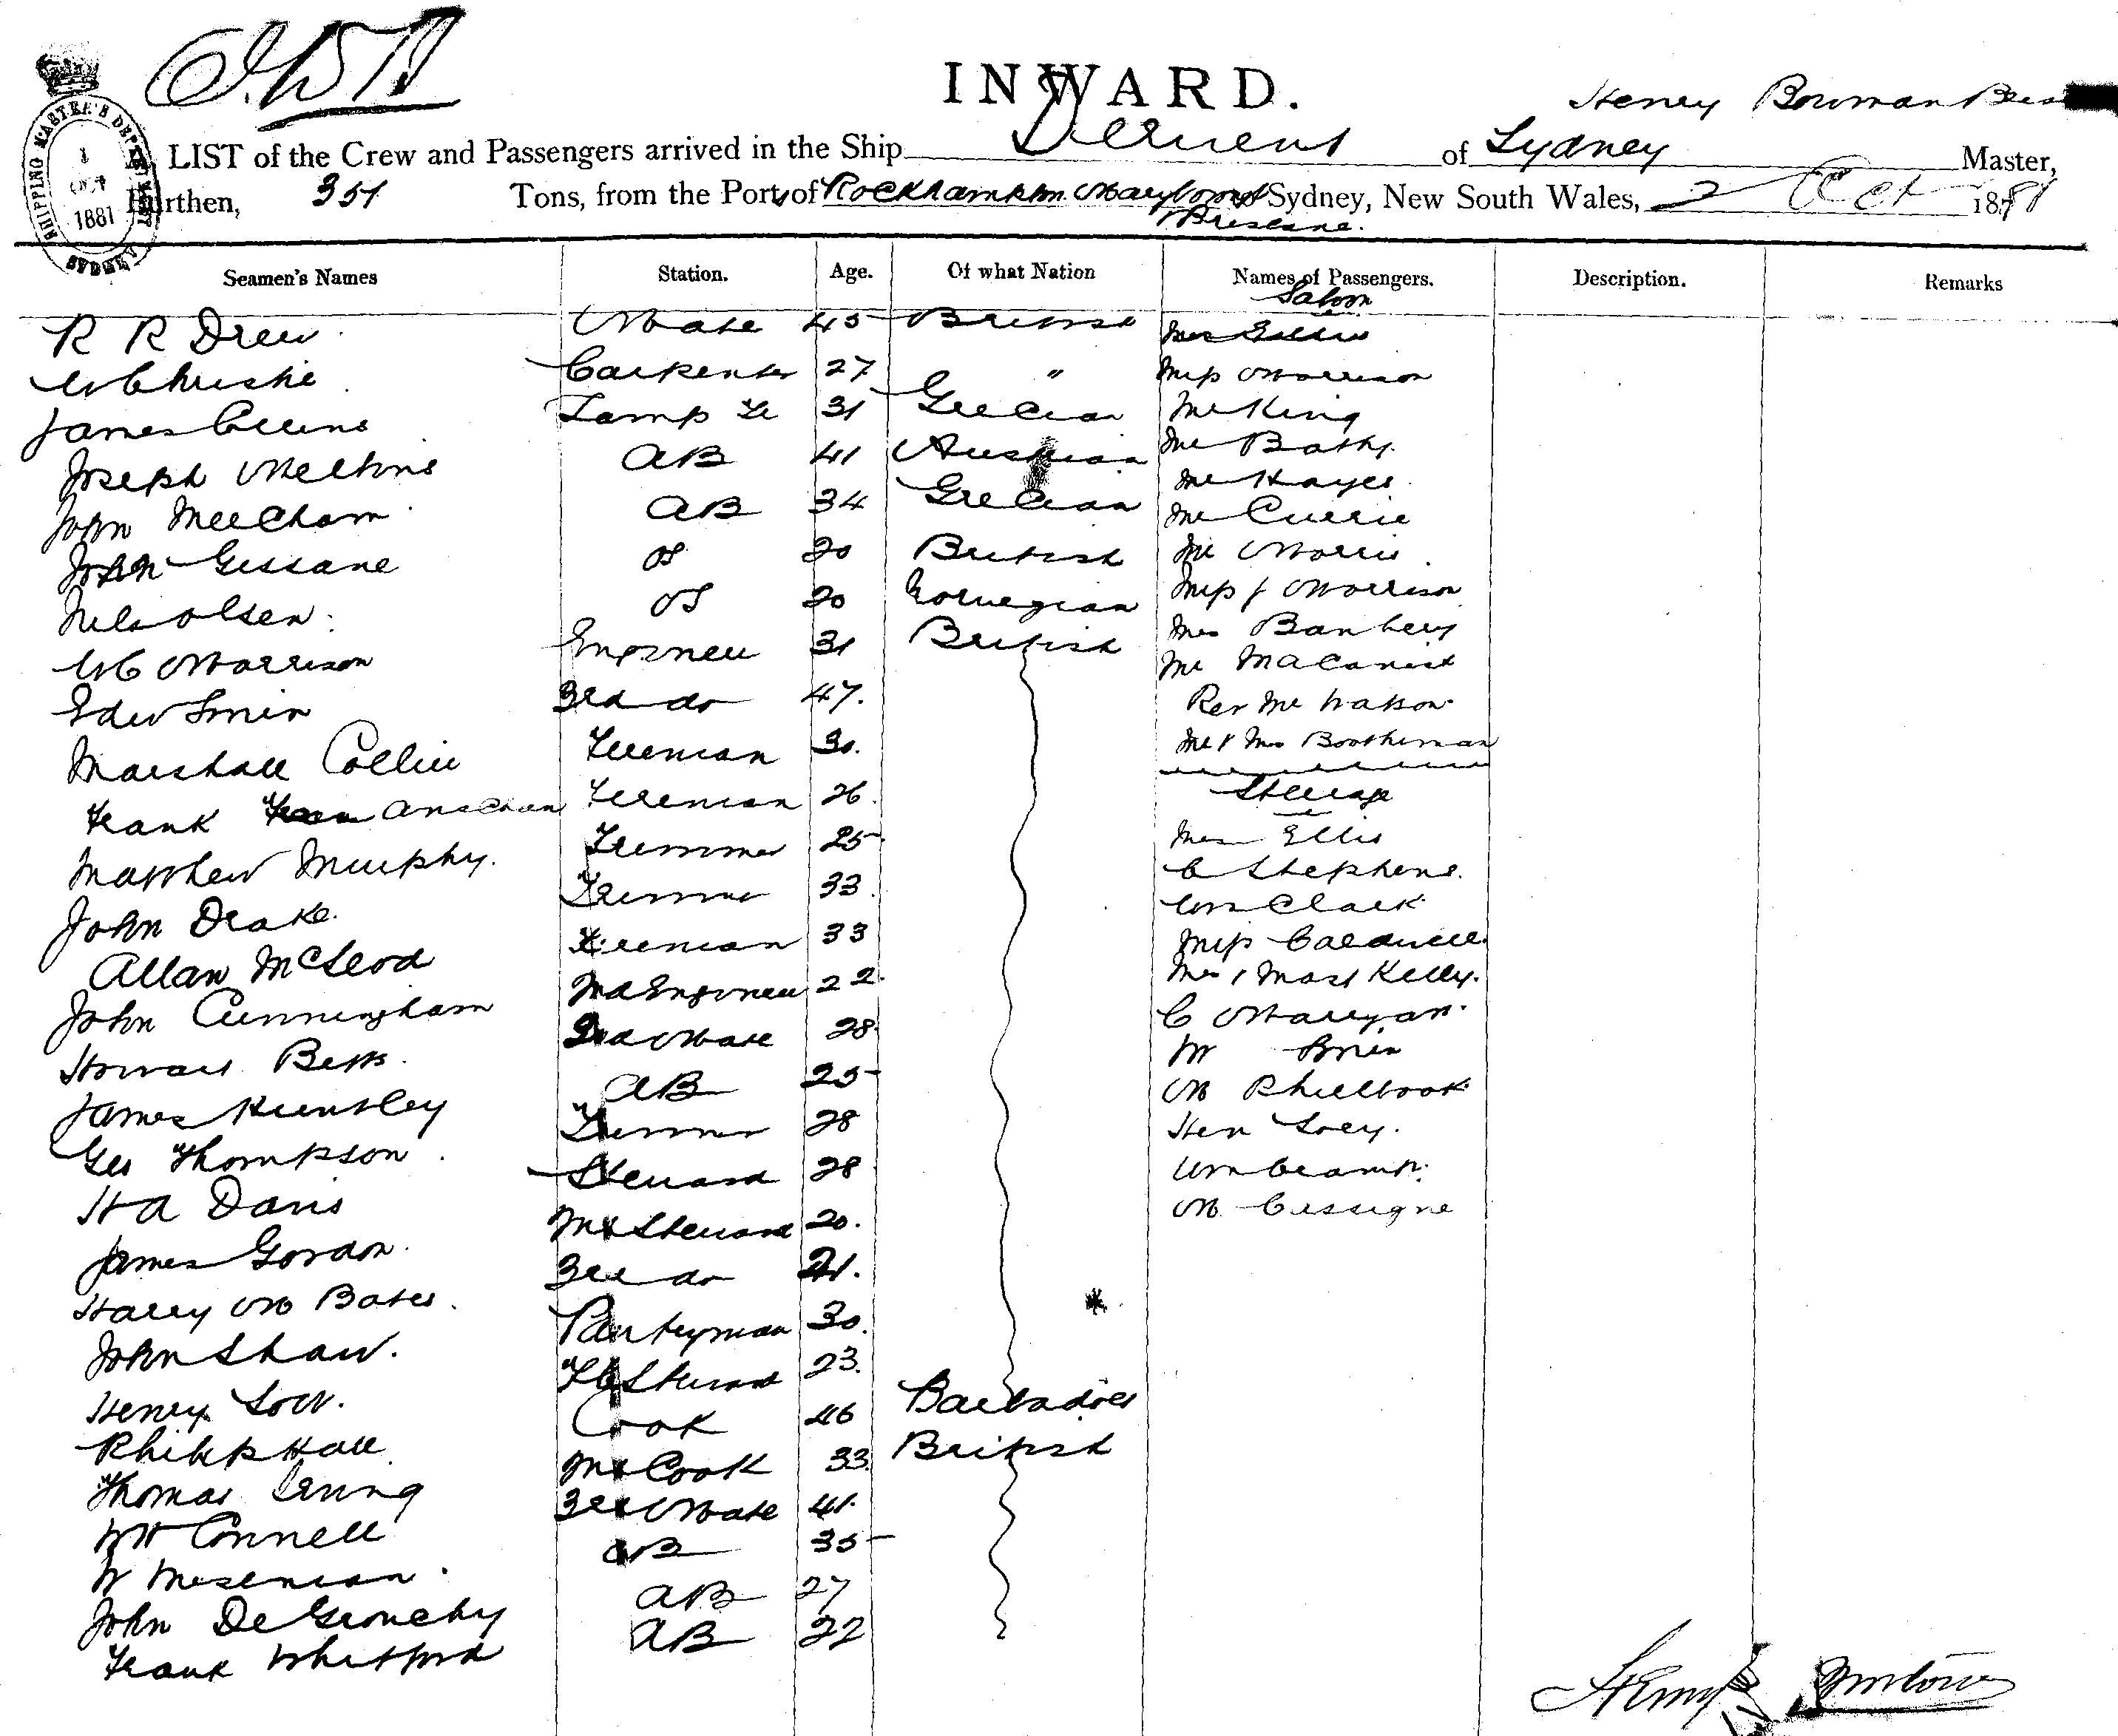 INWARD.
Henry Bowman
SHIPPING MASTER'S DEPARTMENT SYDNEY
3 OCT 1881
LIST of the Crew and Passengers arrived in the Ship Derwent of Sydney Master,
Burthen, 351 Tons, from the Port, of Rockhampton Maryboro Sydney, New South Wales, 2 Oct 1881
& Brisbane.
Seamen's Names Station. Age. Of what Nation Names of Passengers. Description. Remarks
Saloon
R R Drew Mate 45 British Mrs Ellis
W Christie Carpenter 27 " Miss Morrison
James Collins Lamp Tr 31 Grecian Mr King
Joseph AB 41 Austrian Mr Baths
John Meecham AB 34 Grecian Mr Hayes
John Gissane OS 20 British Mr Currie
Nels Olsen OS 20 Norwegian Mr Morris
W C Morrison Engineer 31 British Miss J Morrison
Edw 3rd do 47. Mrs Banbery
Marshall Collier Fireman 30. Mr
Frank Fireman 26. Rev Mr Watson
Matthew Murphy. Trimmer 25 Mr & Mrs Bootheman
John Drake. Trimmer 33 Steerage
Allan McLeod Fireman 33 Mrs Ellis
John Cunningham 2nd Engineer 22. C Stephens.
Howard Betts. 2nd Mate 28. Wm Clark
James Huntley AB 25 Miss Caldwell
Geo Thompson Trimmer 28 Mrs & Mast Kelly.
H A Davis Steward 28 C
James Gordon 2nd Steward 20. W
Harry M Bates. 3rd do 21. M Philbrook
John Shaw. Pantryman 30.
Henry Low. F C Steward 23. Wm Cramp.
Philip Hall Cook 46 Barbadoes M
Thomas 2nd Cook 33. British
W H Connell 3rd Mate 41.
W AB 35
John De Gruchy AB 27
Frank Whitford AB 22